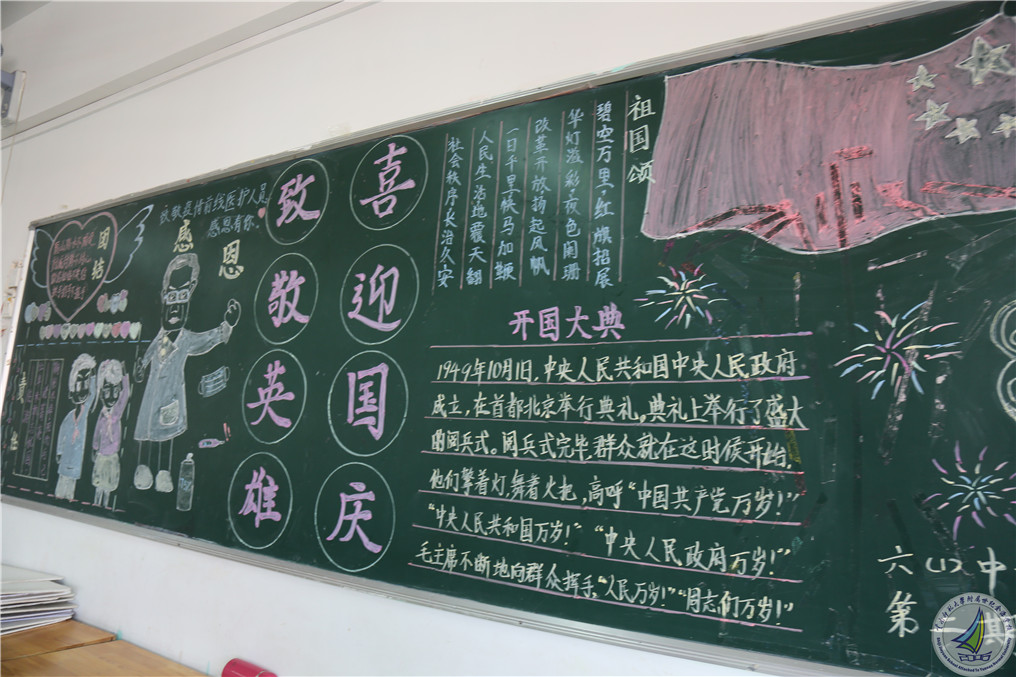 团结
致敬疫情前线医护人员
感恩有你.
感恩
喜迎国庆
致敬英雄
祖国颂
碧空万里红旗招展
华灯溢彩夜色阑珊
改革开放扬起风帆
一日千里候马加鞭
人民生活地覆天翻
社会秩序长治久安
开国大典
1949年10月1日,中央人民共和国中央人民政府
成立,在首都北京举行典礼。典礼上举行了盛大
的阅兵式。阅兵式完毕,群众就在这时候开始,
他们擎着灯,舞着火把,高呼“中国共产党万岁!”
“中央人民共和国万岁!” “中央人民政府万岁!”
毛主席不断地向群众挥手,“人民万岁!”“同志们万岁!”
六(1)中
第二期